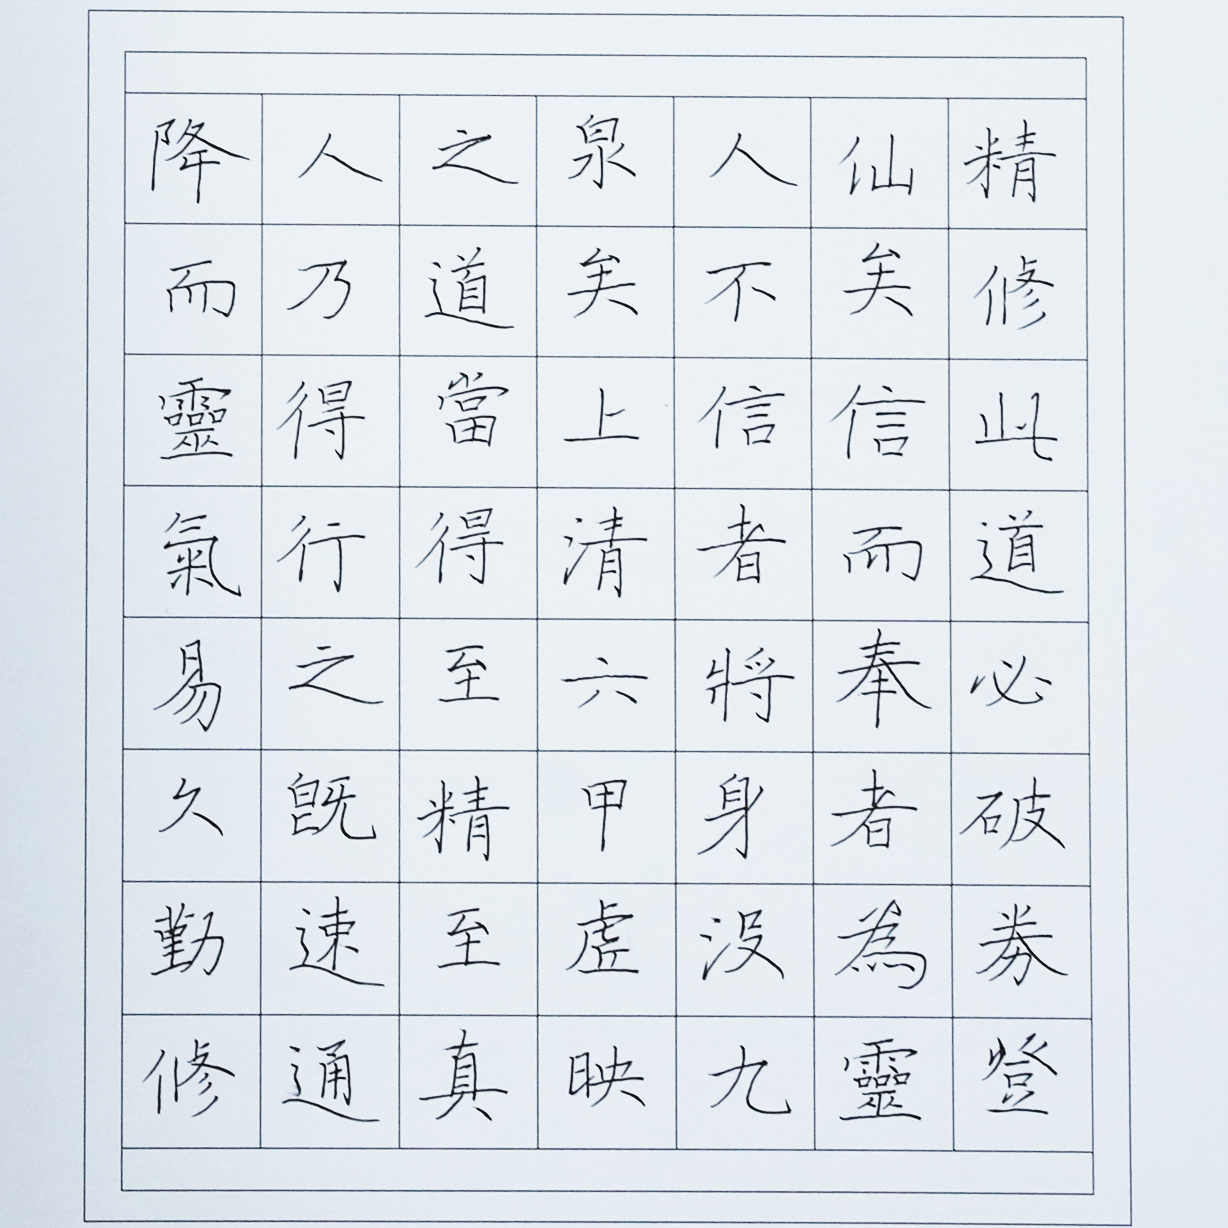 精修此道必破券登
仙矣信而奉者為靈
人不信者將身没九
泉矣上清六甲虚映
之道當得至精至真
人乃得行之既速通
降而靈氣易久勤修